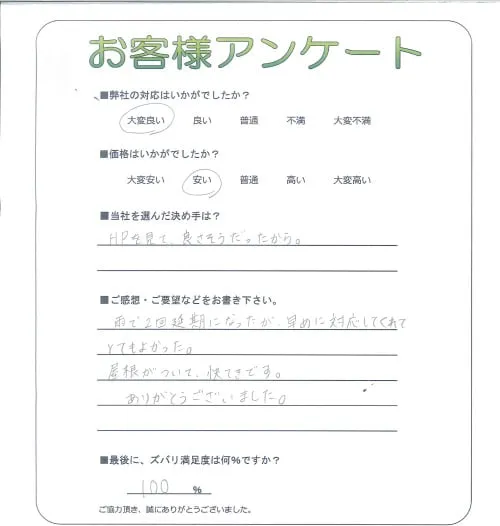 お客様アンケート
■弊社の対応はいかがでしたか？
大変良い 良い 普通 不満 大変不満
■価格はいかがでしたか？
大変安い 安い 普通 高い 大変高い
■当社を選んだ決め手は？
HPを見て、良さそうだったから。
■ご感想・ご要望などをお書き下さい。
雨で2回延期になったが、早めに対応してくれて
とてもよかった。
屋根がついて、快てきです。
ありがとうございました。
■最後に、ズバリ満足度は何%ですか？
100 %
ご協力頂き、誠にありがとうございました。